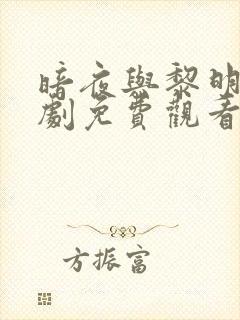 暗夜與黎明
劇免費觀看
方振富